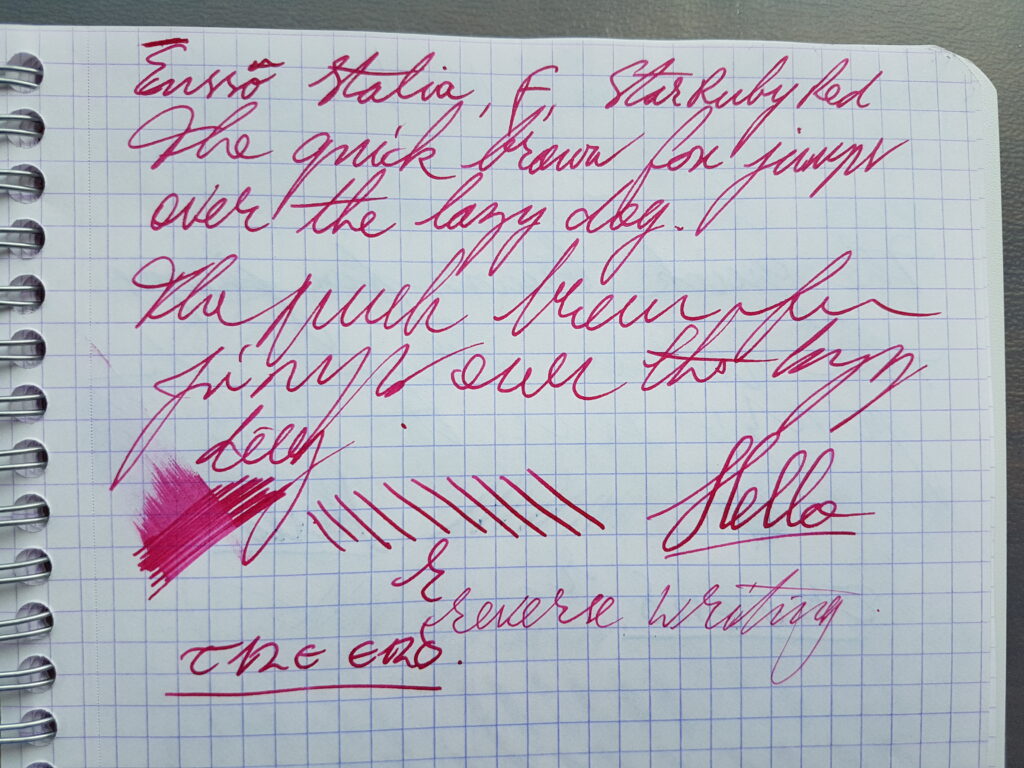 Enssō Italia, F, Star Ruby Red
The quick brown fox jumps
over the lazy dog.
The quick brown fox
jumps over the lazy
dog
Hello
reverse writing.
THE END.